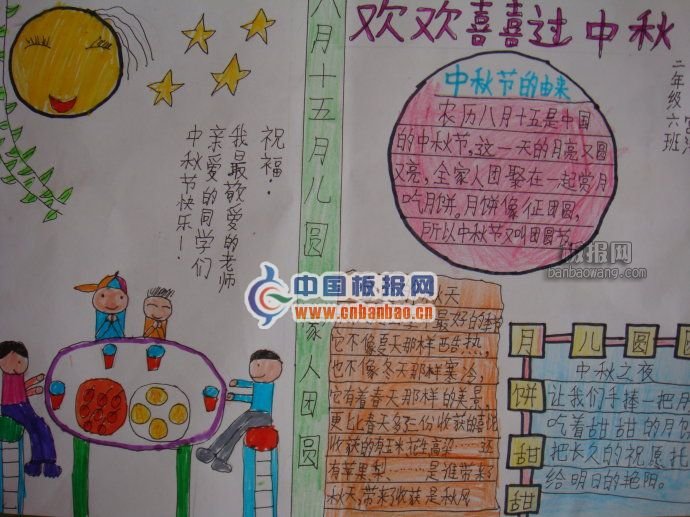 欢欢喜喜过中秋
二年级
六班
八月十五月儿圆
家人团圆
祝福：
我最敬爱的老师
亲爱的同学们
中秋节快乐！
中秋节的由来
农历八月十五是中国
的中秋节，这一天的月亮又圆
又亮，全家人团聚在一起赏月
吃月饼。月饼像征团圆，
所以中秋节又叫团圆节
板报网
banbaowang.com
中国板报网
www.cnbanbao.cn
秋天
最好的季节
它不像夏天那样酷热，
也不像冬天那样寒冷，
它有着春天那样的美景，
更比春天多了一份收获的喜悦
收获的有玉米花生高粱……还
有苹果梨……是谁带来了
秋天，带来了收获是秋风
月儿圆圆
饼甜甜
中秋之夜
让我们手捧一把月
吃着甜甜的月饼
把长久的祝愿托
给明日的艳阳。